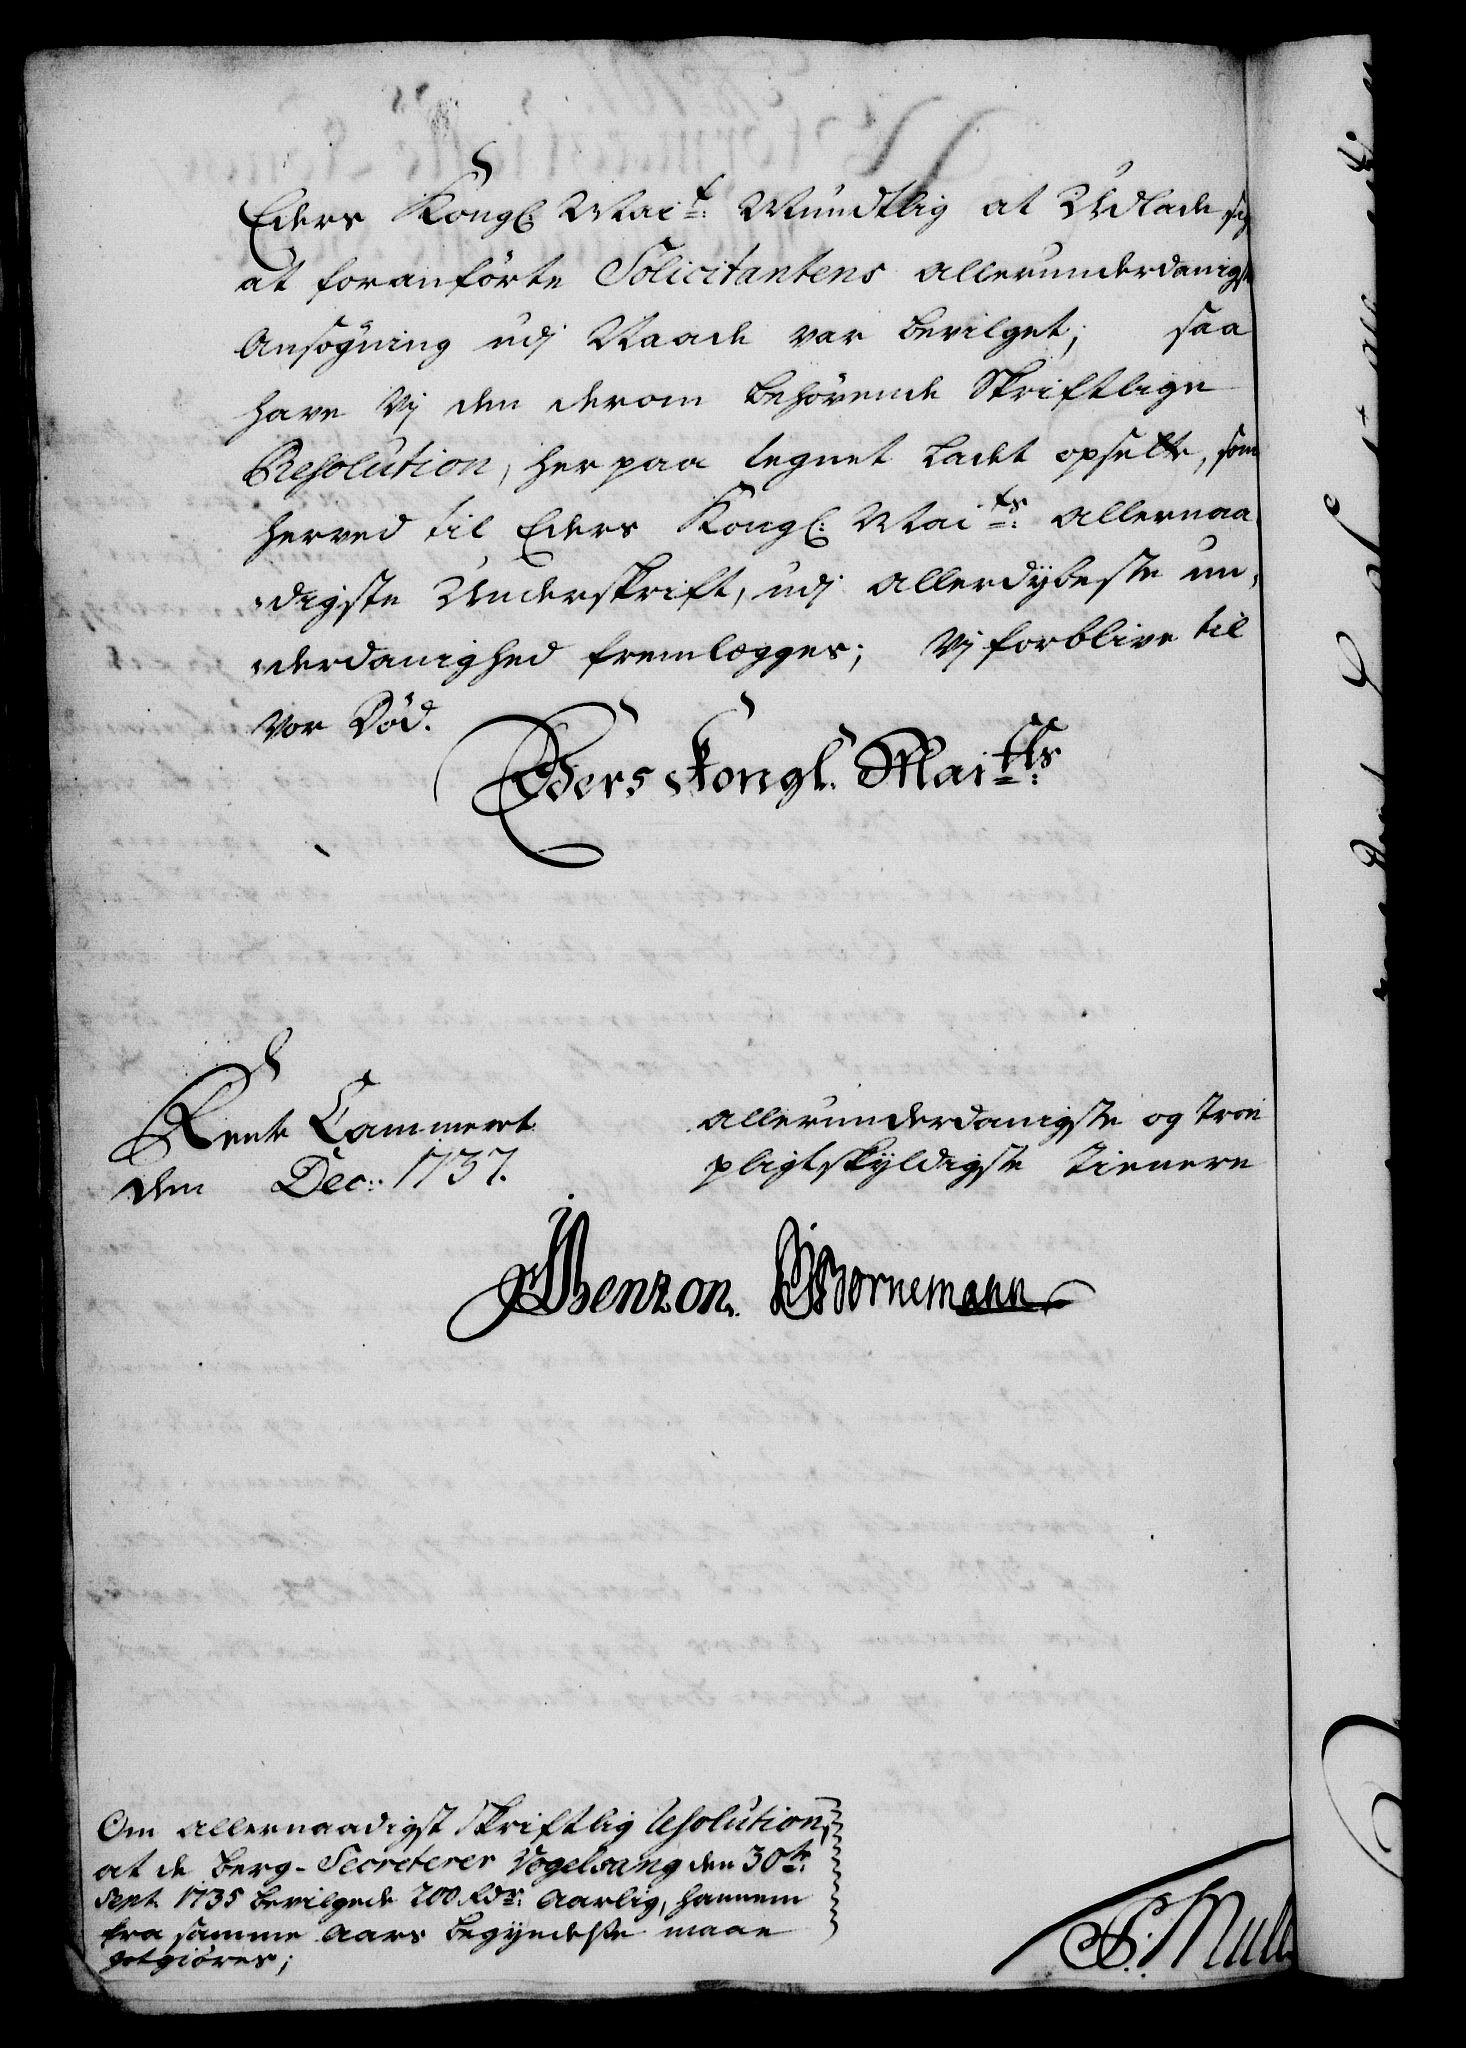 Eders Kongl: Mai^t: Mundtlig at Udlade sig
at foranførte Solicitantens allerunderdanigste
Ansøgning udj Naade var bevilget; saa
have Vj den derom behørende Skriftlige
Resolution, her paa tegnet ladet opsette, som
herved til Eders Kongl: Mai^ts: allernaa
digste Underskrift, udj allerdybeste un,
derdanighed fremlegges; Vj forblive til
vor Død.
Eders Kongl. Mai^tts:
Rente Cammeret
den Dec: 1737.
allerunderdanigste og troe
pligtskyldigste tienere
Benzon. Bornemann
Om allernaadigst skriftlig Resolution,
at de Berg-Secreterer Vogelsang den 30^te:
Sept. 1735 bevilgede 200 Rdr: aarlig, hannem
fra samme Aars begyndelse maae
gotgiøres;
S: Mull